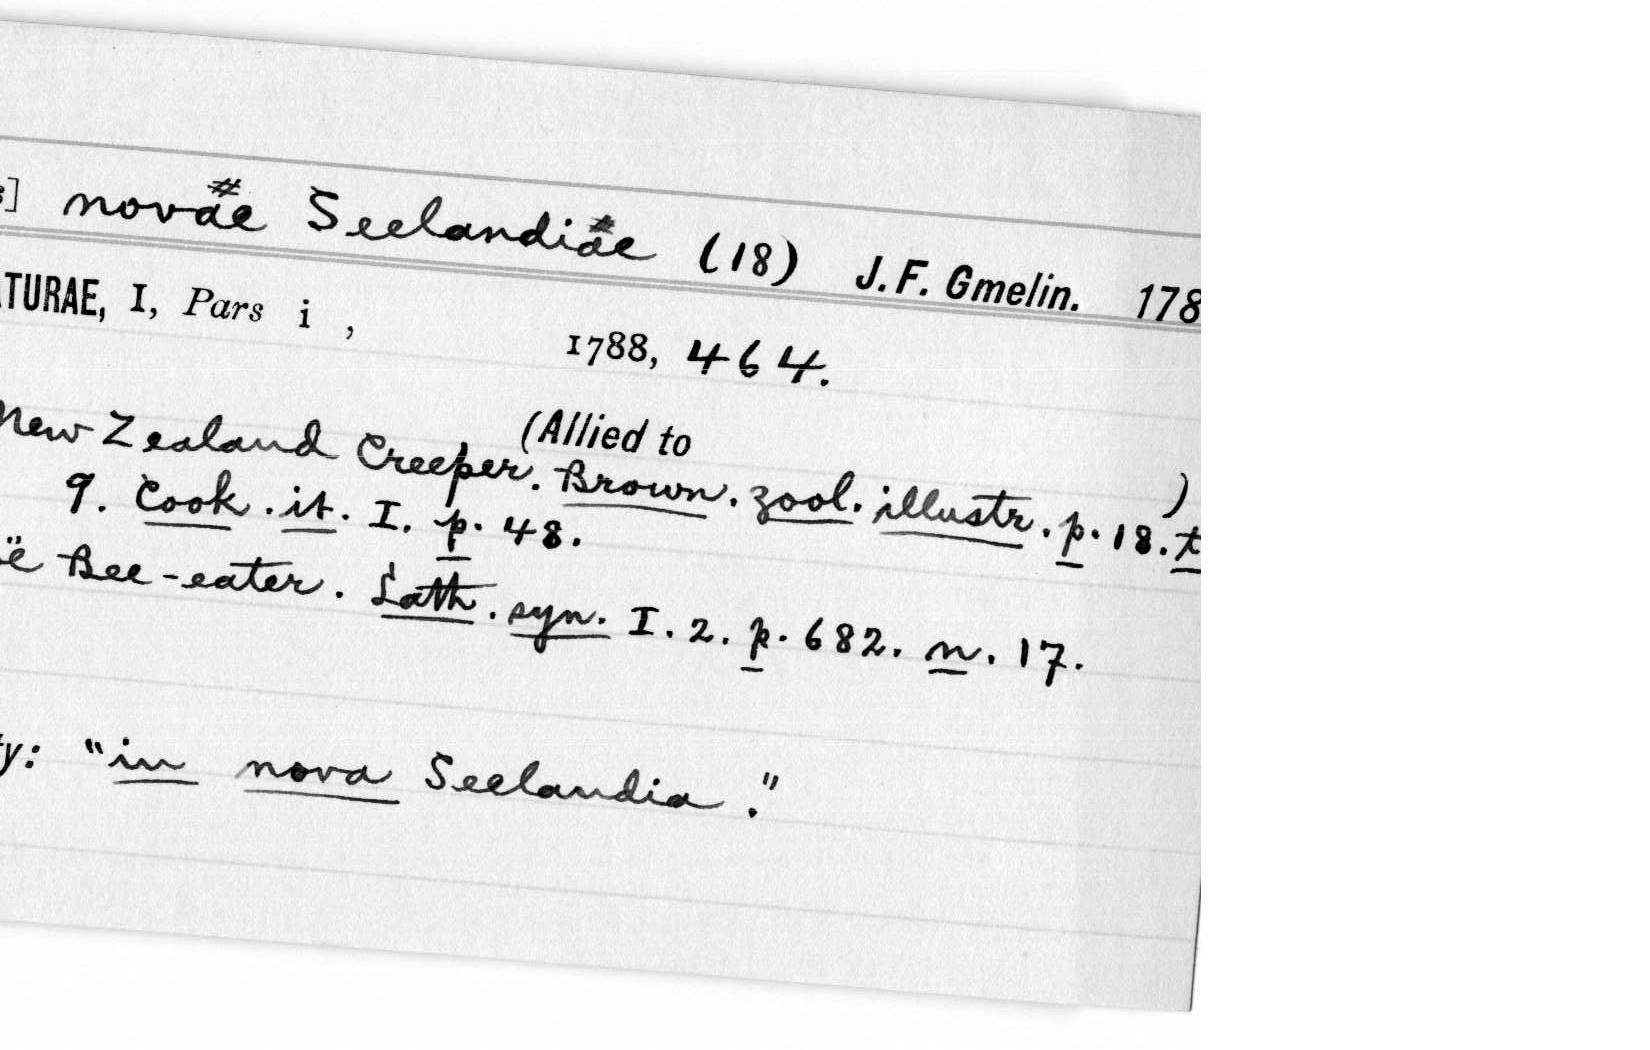 ] novae Seelandiae (18) J. F. Gmelin. 178
TURAE, I, Pars i , 1788, 464.
(Allied to )
New Zealand Creeper. Brown. zool. illustr. p. 18. t
9. Cook. it. I. p. 48.
Bee-eater. Lath. syn. I. 2. p. 682. n. 17.
ty: "in nova Seelandia."